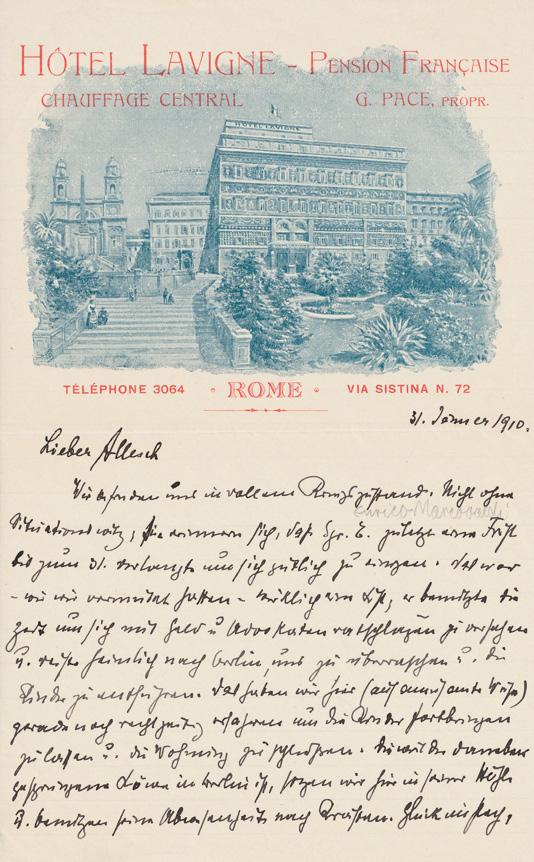 HÔTEL LAVIGNE - PENSION FRANÇAISE
CHAUFFAGE CENTRAL G. PACE, PROPR.
HOTEL LAVIGNE
TÉLÉPHONE 3064 · ROME · VIA SISTINA N. 72
31. Jänner 1910.
Lieber Allesch
Wir befinden uns in vollem Kriegszustand. Nicht ohne
Enrico Marcovaldi
Situationswitz; Sie erinnern sich, daß Sgr. E. zuletzt eine Frist
bis zum 31. verlangte um sich gütlich zu einigen. Das war
- wie wir vermutet hatten - wirklich eine List, er benützte die
Zeit um sich mit Geld u Advokatenratschlägen zu versehen
u. reiste heimlich nach Berlin, uns zu überraschen u. die
Kinder zu entführen. Das haben wir hier (auf amüsante Weise)
gerade noch rechtzeitig erfahren um die Kinder fortbringen
zu lassen u. die Wohnung zu schließen. Derweil der daneben
gesprungene Löwe in Berlin ist, sitzen wir hier in seiner Höhle
u. benützen seine Abwesenheit nach Kräften. Glück im Pech,